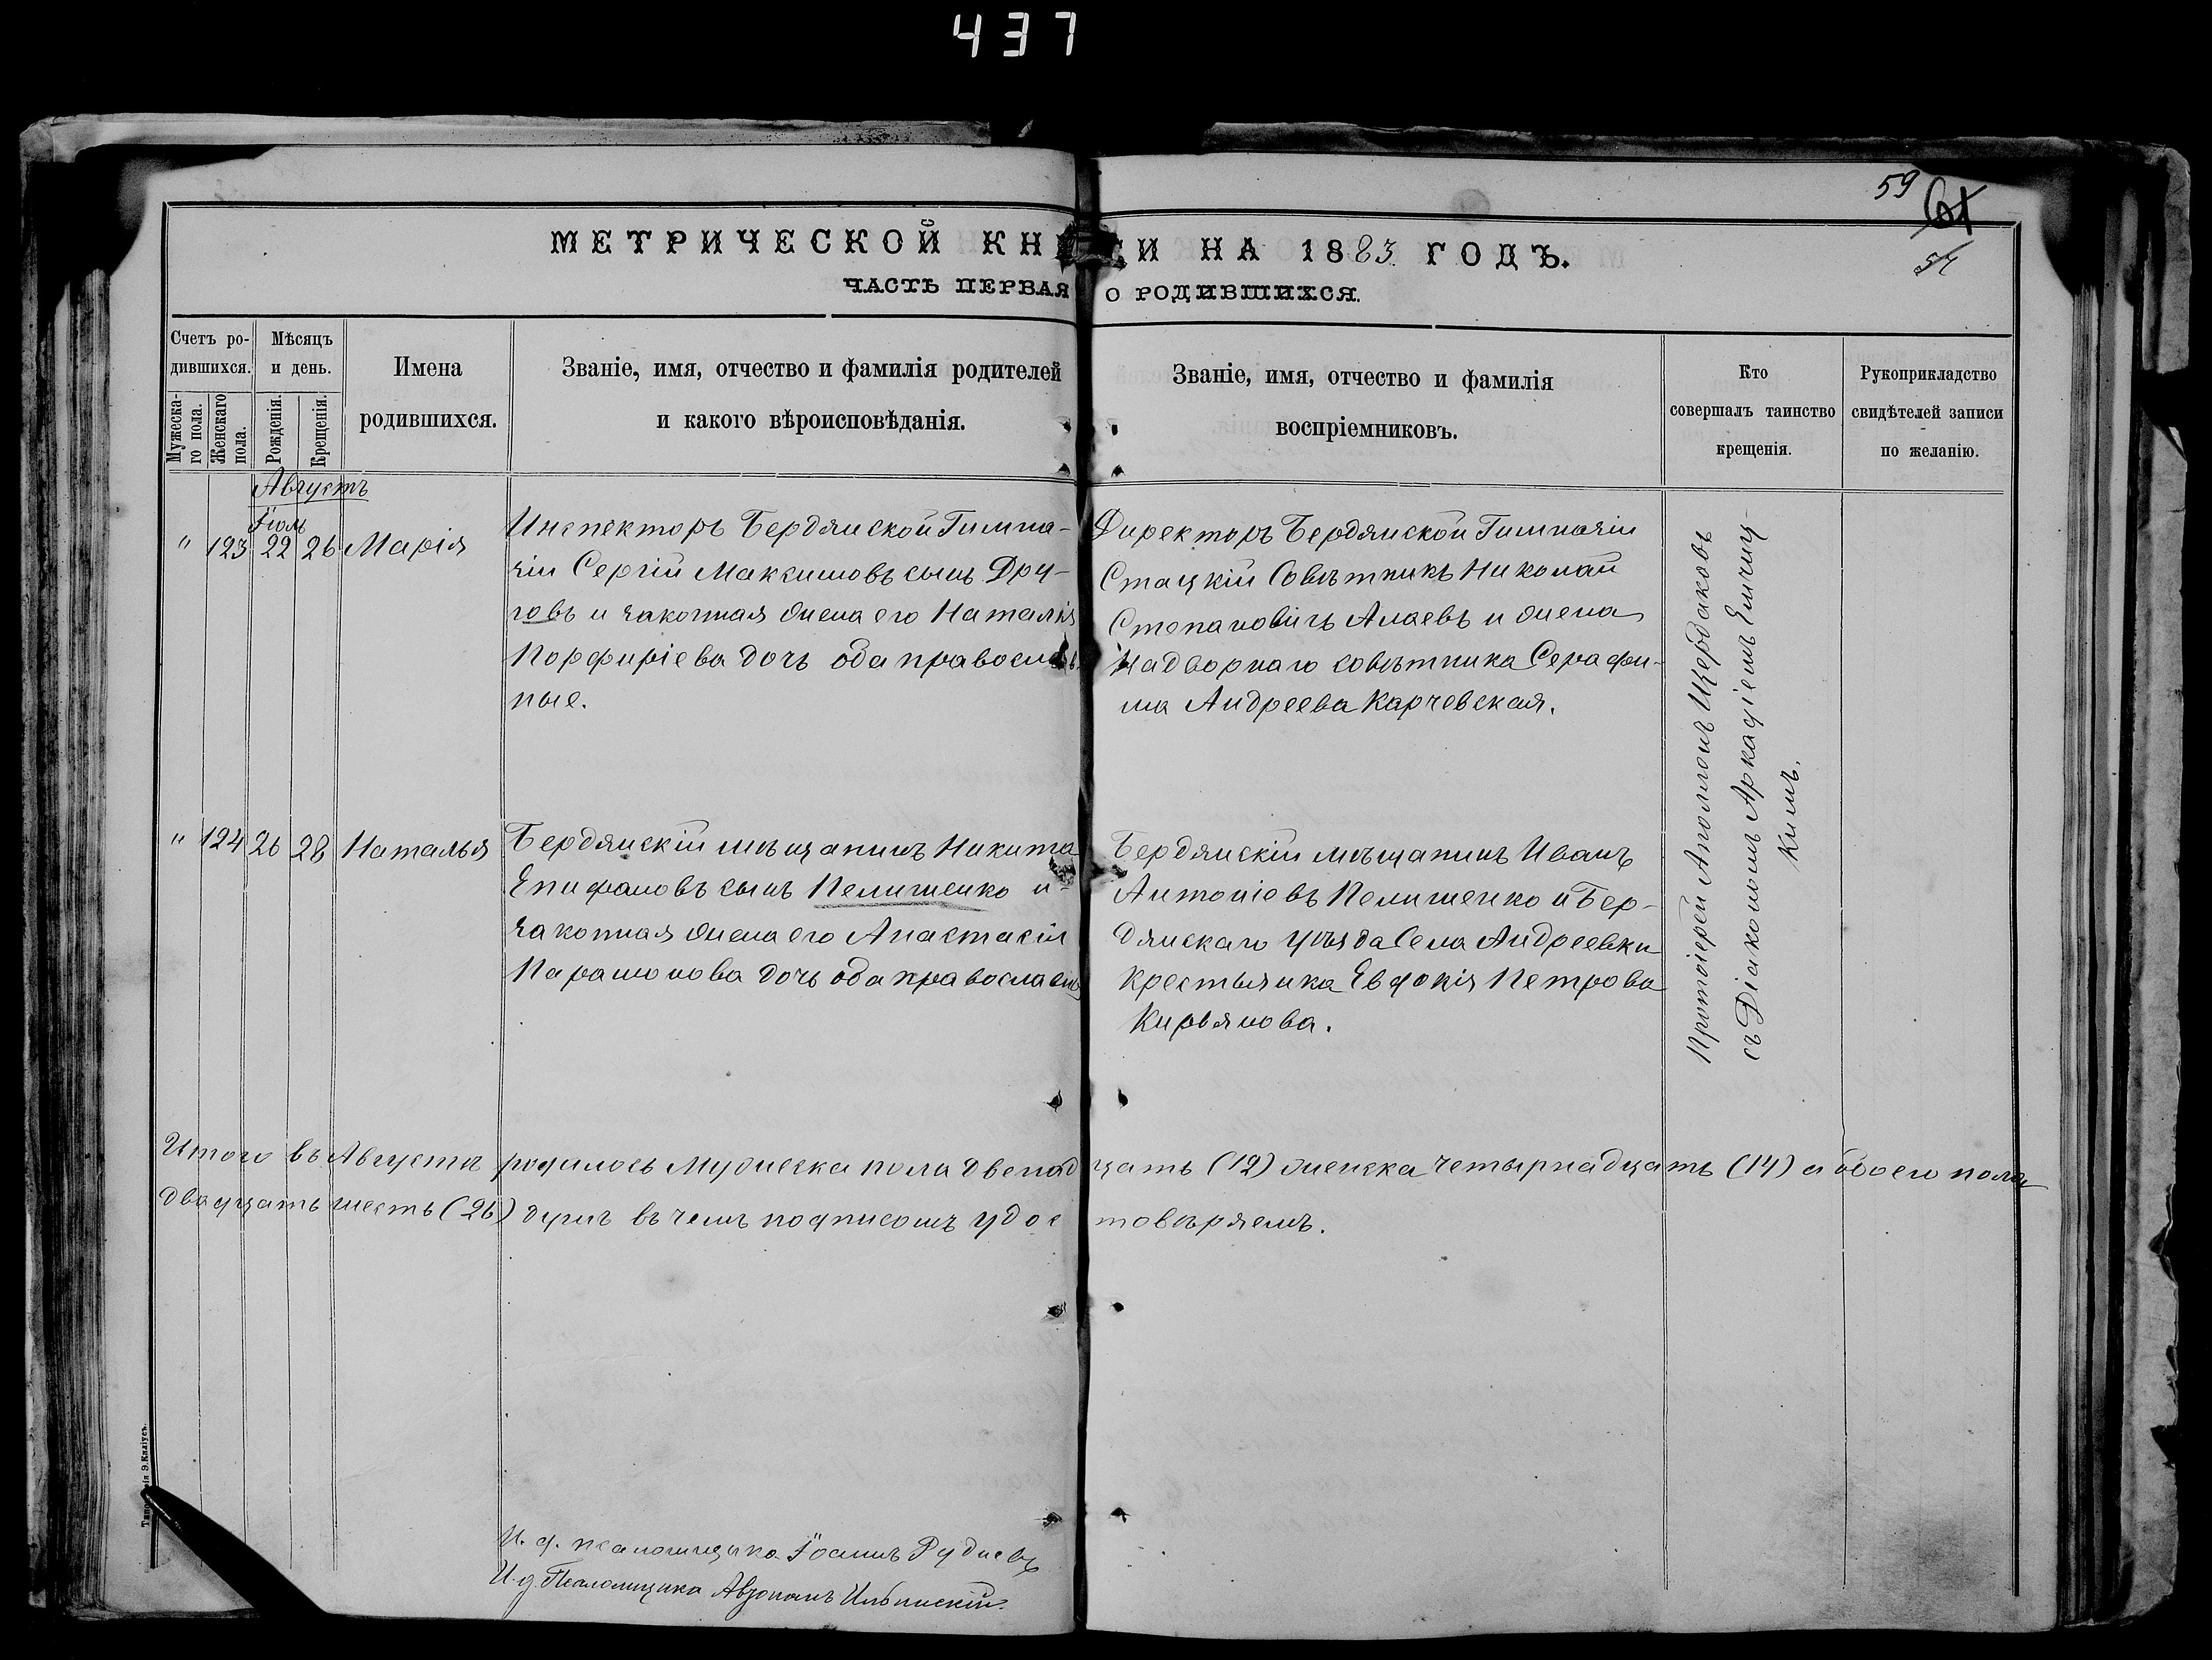 437
59
61
54
МЕТРИЧЕСКОЙ КНИГИ НА 1883 ГОДЪ.
ЧАСТЬ ПЕРВАЯ О РОДИВШИХСЯ.
Счетъ ро-
дившихся.
Мужеска-
го пола.
Женскаго
пола.
Мѣсяцъ
и день.
Рожденія.
Крещенія.
Имена
родившихся.
Званіе, имя, отчество и фамилія родителей
и какого вѣроисповѣданія.
Званіе, имя, отчество и фамилія
воспріемниковъ.
Кто
совершалъ таинство
крещенія.
Рукоприкладство
свидѣтелей записи
по желанію.
Августъ
Іюль
" 123 22 26 Марія
Инспекторъ Бердянской Гимна-
зіи Сергій Максимовъ сынъ Дру-
говъ и законная жена его Наталія
Порфиріева дочь оба православ
ные.
Директоръ Бердянской Гимназіи
Стацкій Совѣтникъ Николай
Степановичъ Алаевъ и жена
Надворнаго совѣтника Серафи-
ма Андреева Карчевская.
Протоіерей Аполлонъ Щербаковъ
съ Діакономъ Аркадіемъ
" 124 26 28 Наталья
Бердянскій мѣщанинъ Никита
Епифановъ сынъ Пелишенко и
законная жена его Анастасія
Парамонова дочь оба православн
Бердянскій мѣщанинъ Иванъ
Антоніевъ Пелишенко и Бер-
дянскаго уѣзда Села Андреевки
крестьянка Евдокія Петрова
Кирьянова.
Итого въ Августѣ родилось Мужеска пола двенадцать (12) женска четырнадцать (14) а обоего пола
двадцать шесть (26) душъ въ чемъ подписомъ удостовѣряемъ.
И. д. псаломщика Іоаннъ Рудневъ
И. д. Псаломщика Авзонамъ Ильинскій.
Типографія Э. Киліусъ.